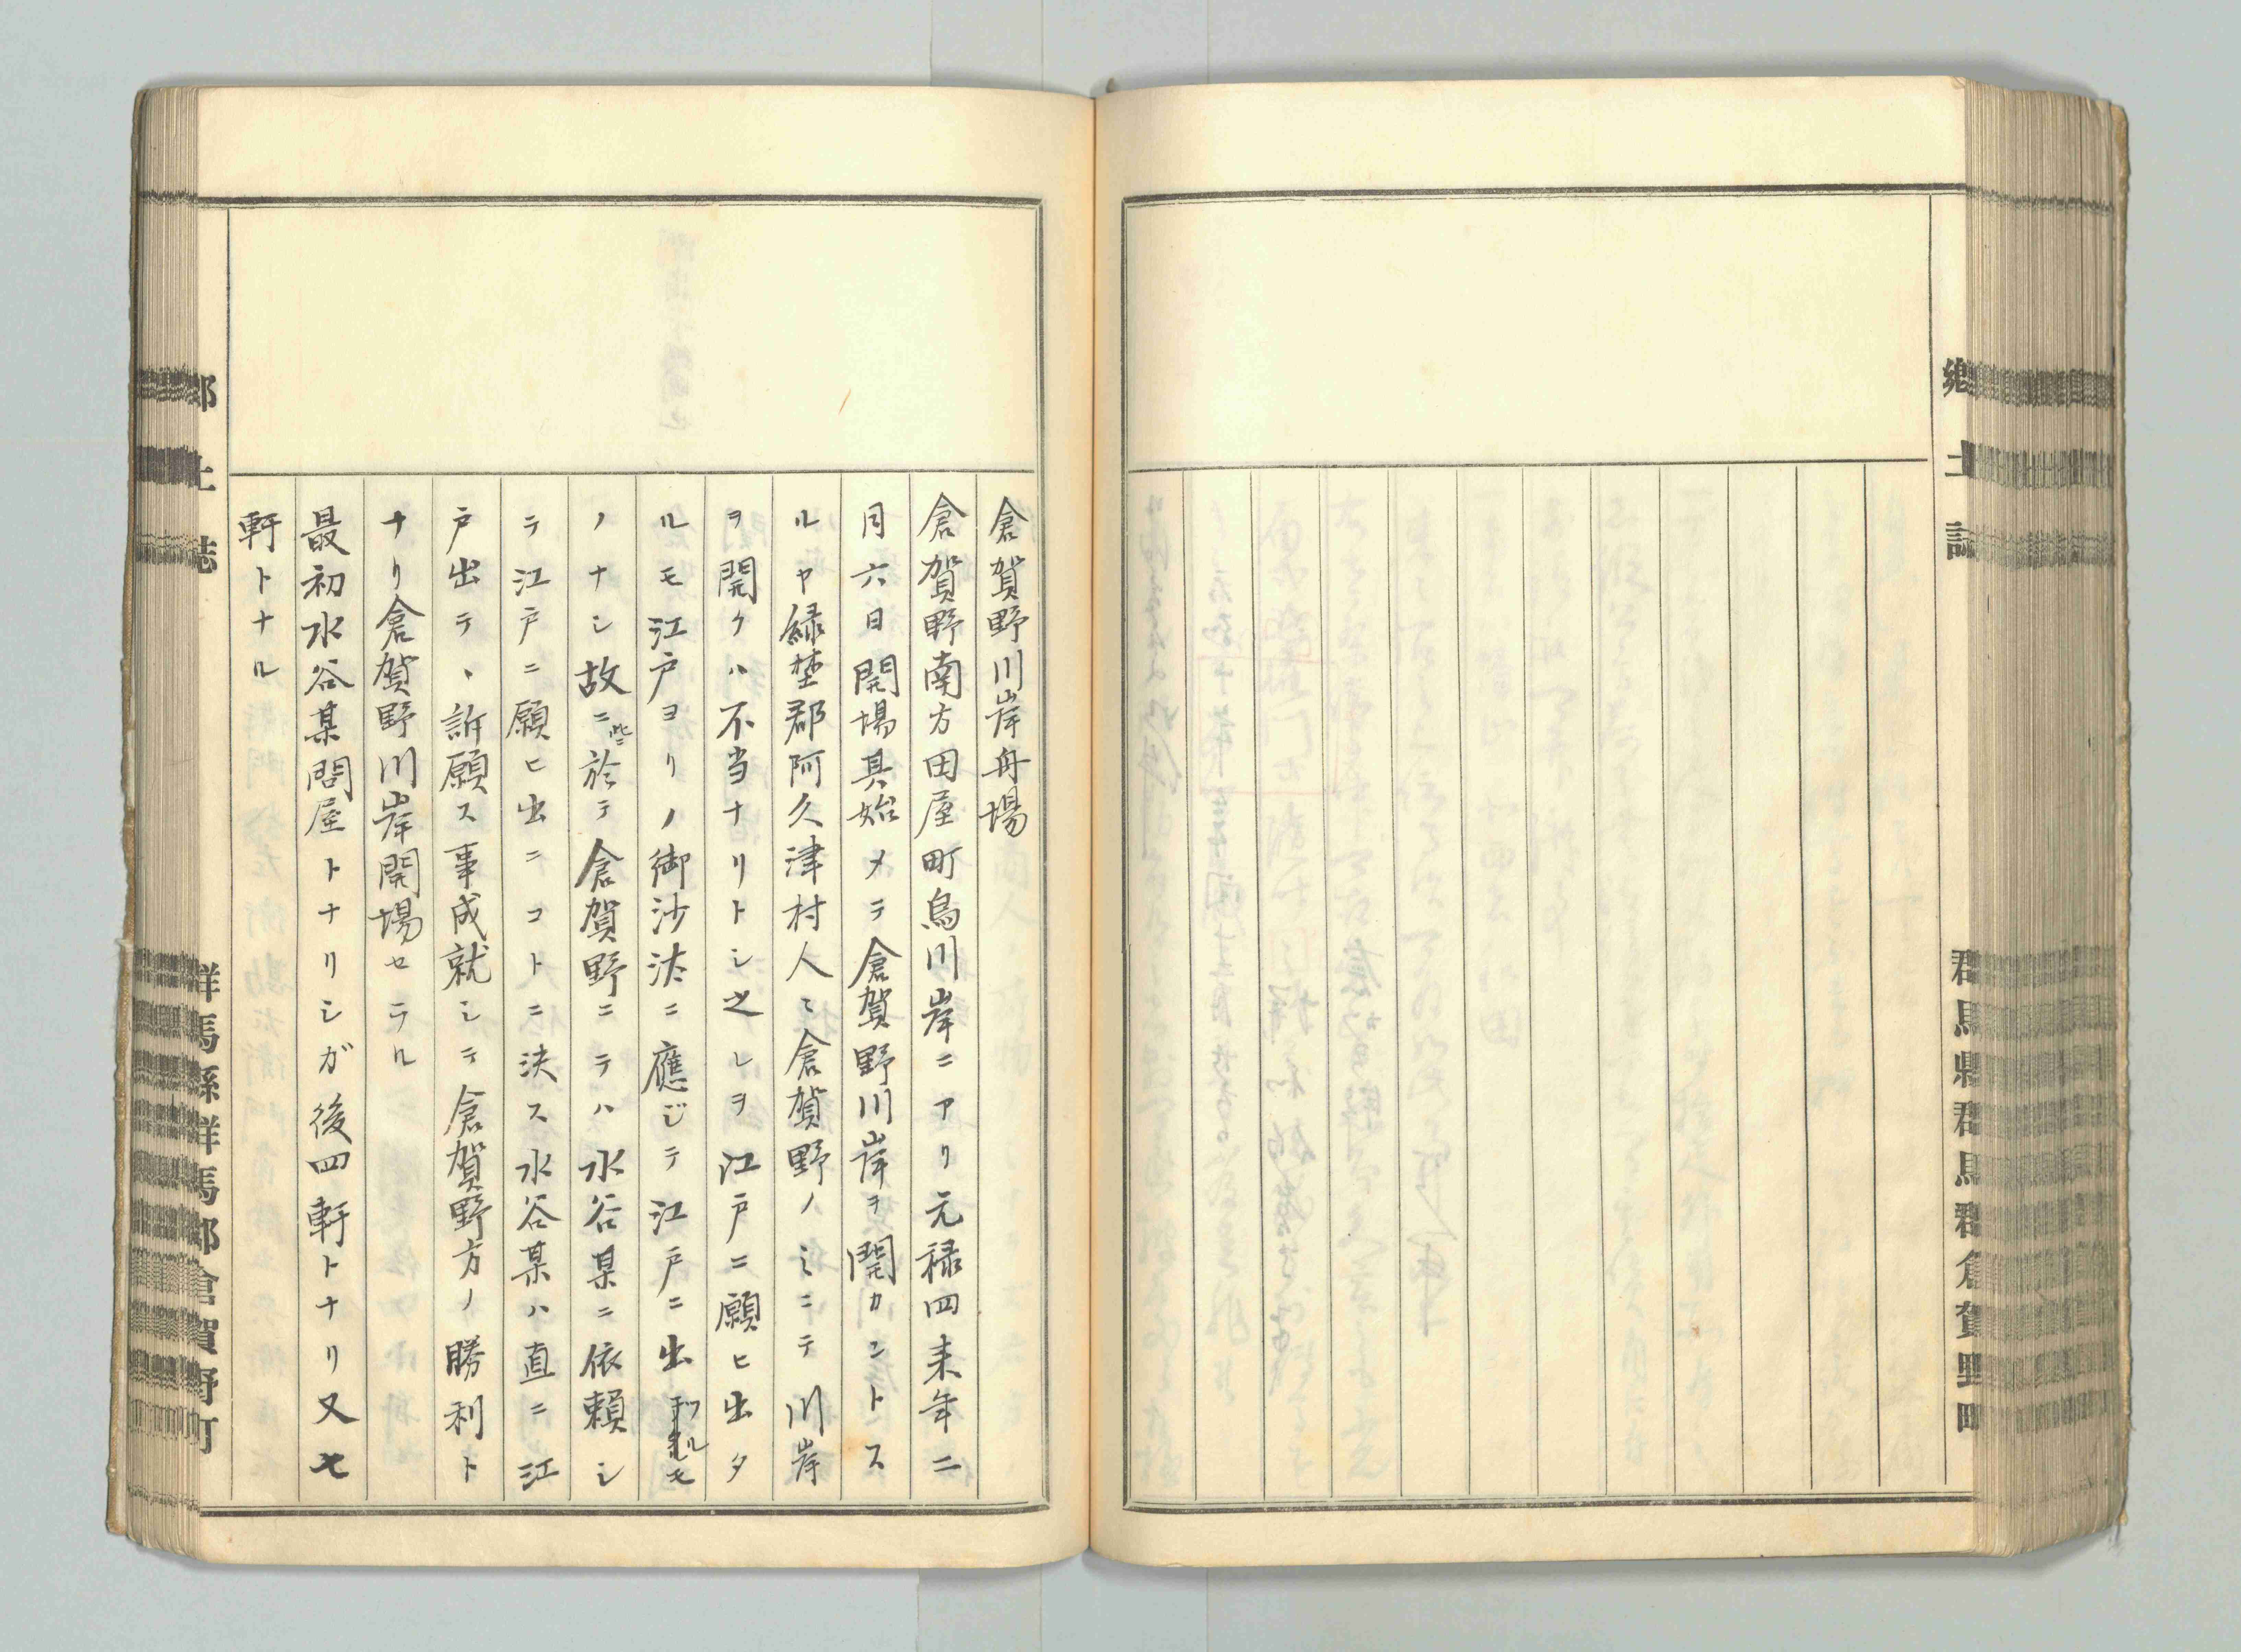 鄕土誌
群馬縣群馬郡倉賀野町
倉賀野川岸舟場
倉賀野南方田屋町烏川岸ニアリ元禄四未年二
月六日開場其始メテ倉賀野川岸ヲ開カントス
ルヤ緑埜郡阿久津村人ミ倉賀野ノミニテ川岸
ヲ開クハ不当ナリトシ之レヲ江戸ニ願ヒ出タ
ルモ江戸ヨリノ御沙汰ニ應ジテ江戸ニ出ルモ
ノナシ故ニ於テ倉賀野ニテハ水谷某ニ依頼シ
テ江戸ニ願ヒ出ニコトニ決ス水谷某ハ直ニ江
戸出テ、訴願ス事成就シテ倉賀野方ノ勝利ト
ナリ倉賀野川岸開場セラル
最初水谷某問屋トナリシガ後四軒トナリ又七
軒トナル
鄕土誌
群馬縣群馬郡倉賀野町